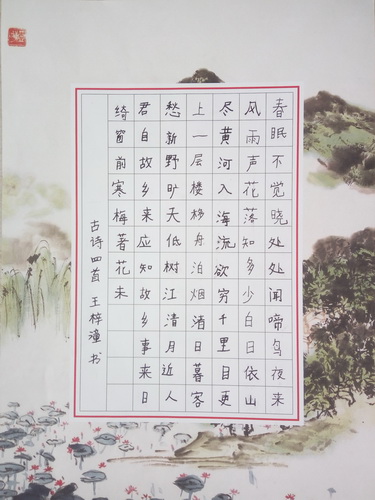 春眠不觉晓处处闻啼鸟夜来
风雨声花落知多少白日依山
尽黄河入海流欲穷千里目更
上一层楼移舟泊烟渚日暮客
愁新野旷天低树江清月近人
君自故乡来应知故乡事来日
绮窗前寒梅著花未
古诗四首 王梓潼书